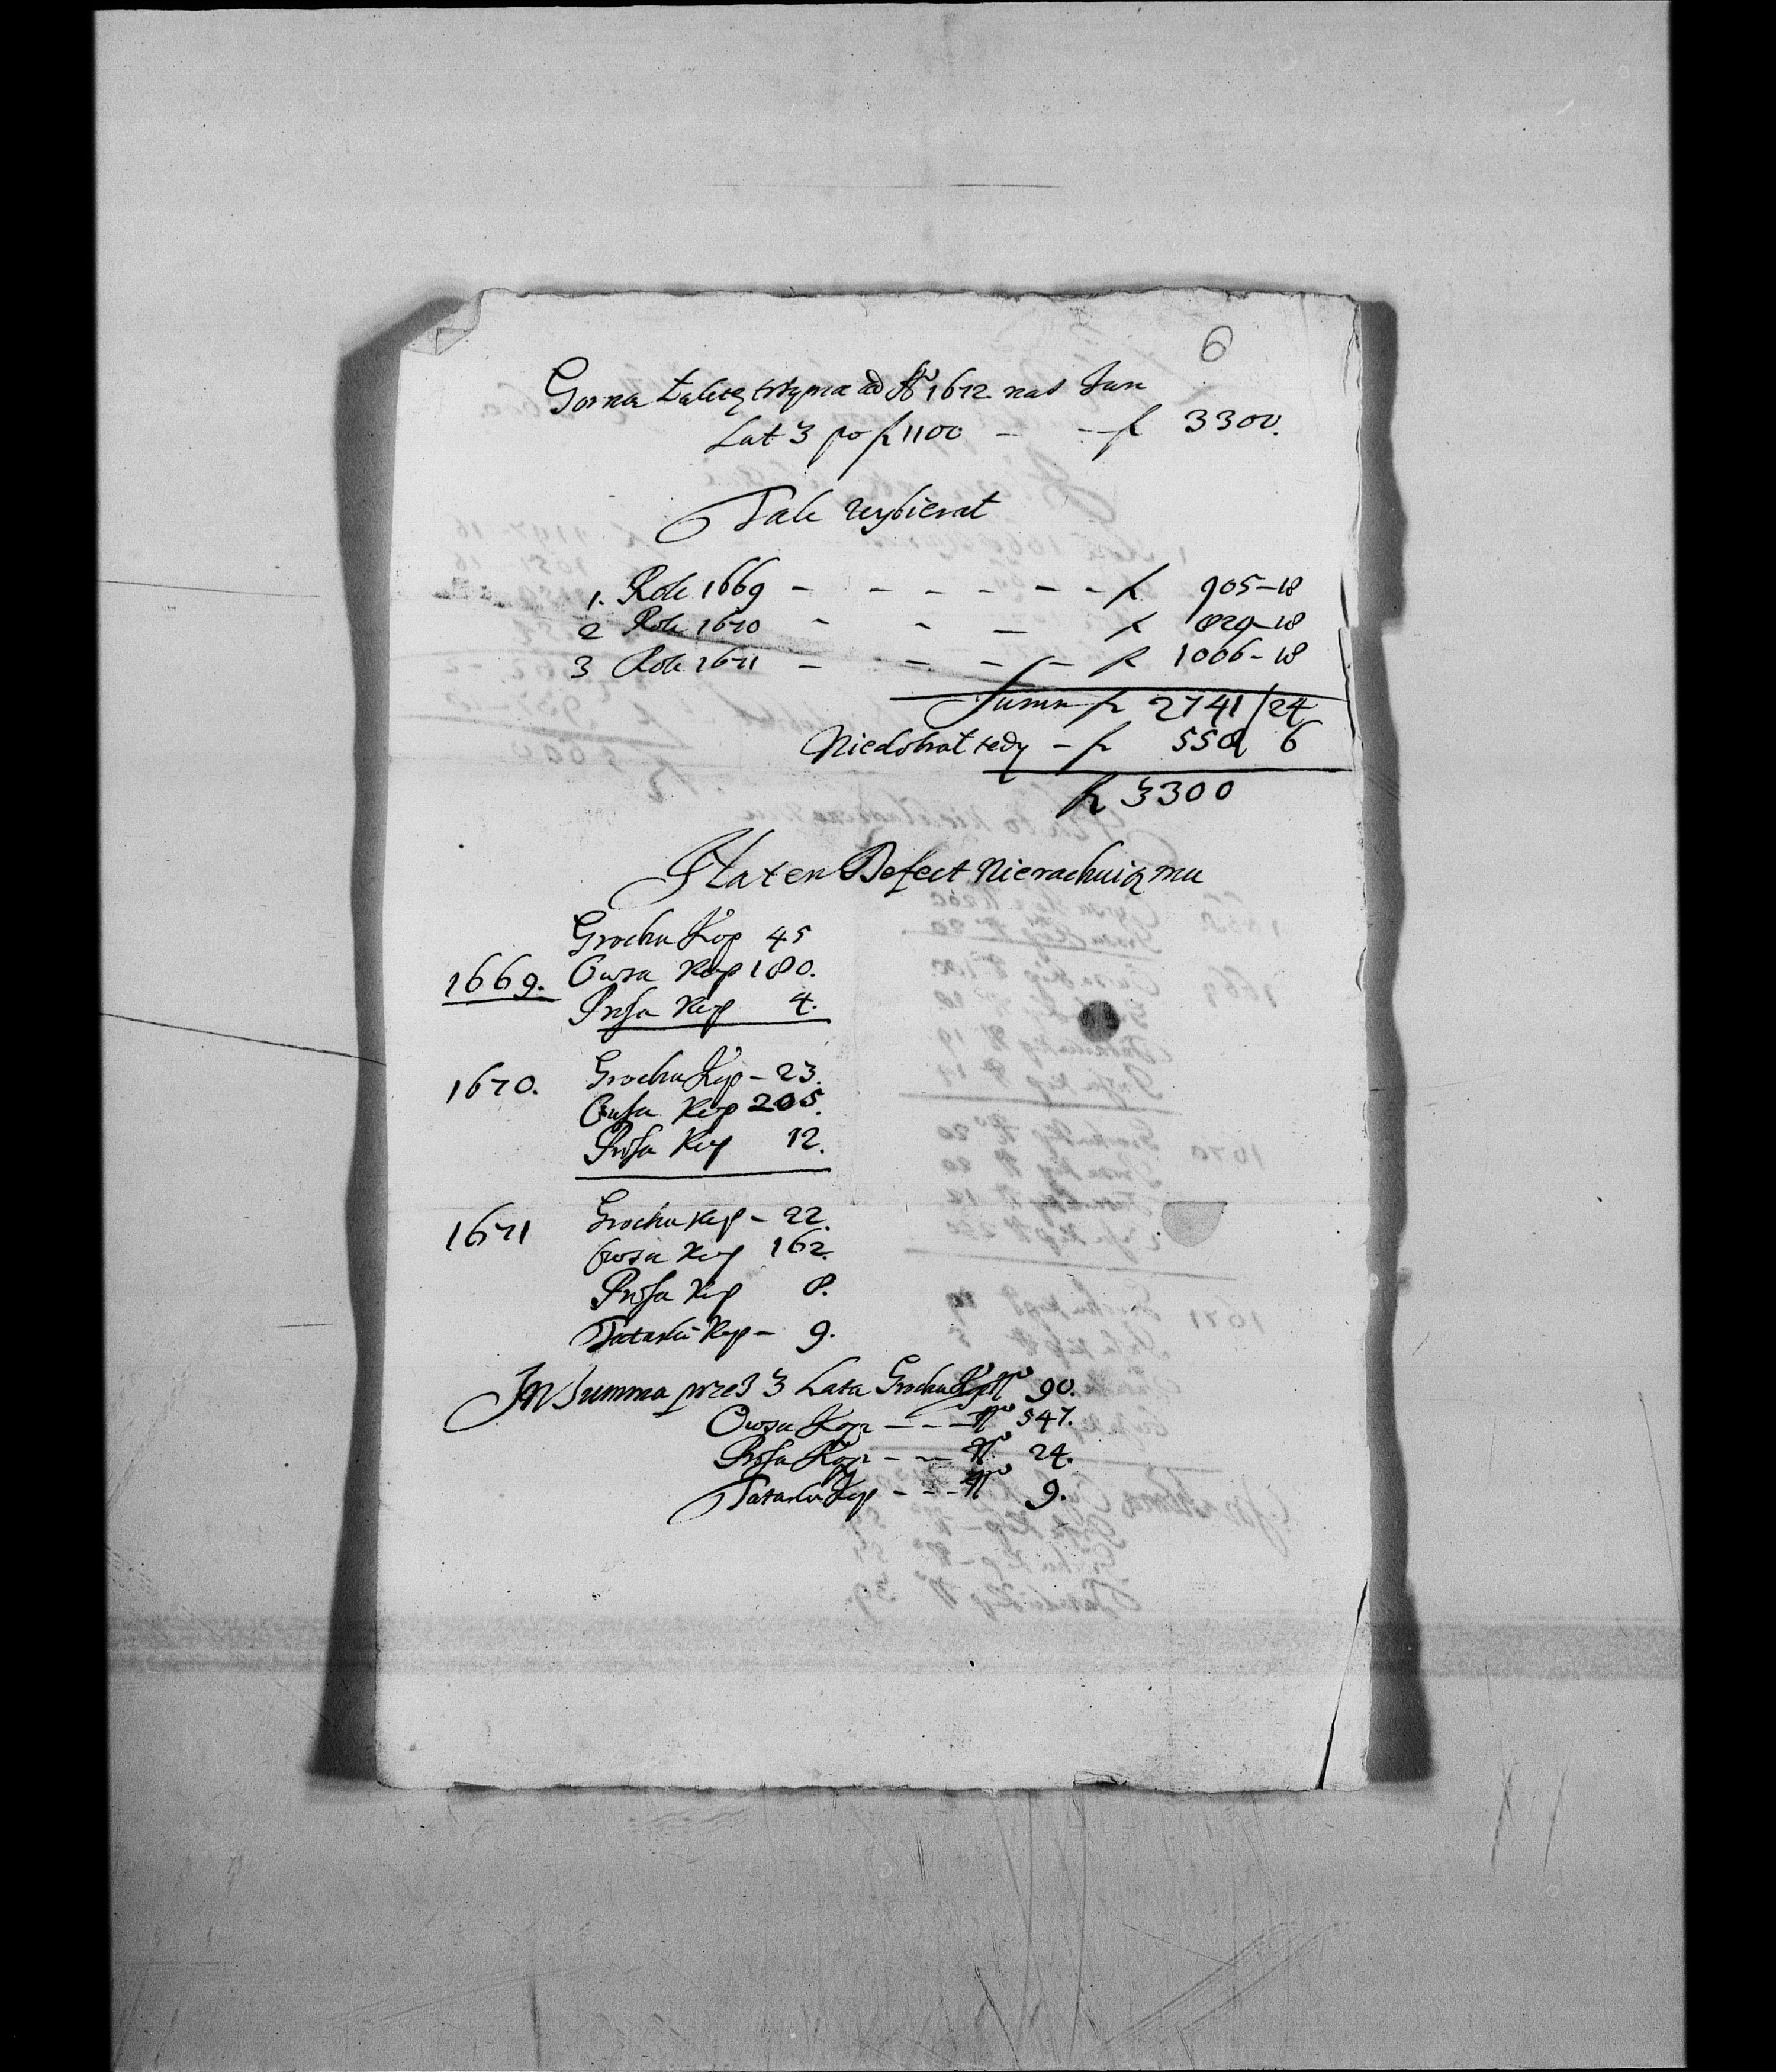 6
Gorną Łąkę trzyma ad Aō 1672 nas Jun
Lat 3 po f 1100 - - - f 3300.
Tak wybierał
1. Rok 1669 - - - - - - - f 905-18
2 Rok 1670 - - - f 829-18
3 Rok 1671 - - - - f 1006-18
Summ f 2741/24
Niedobrał tedy - f 558 6
f 3300
Na ten Defect Nierachuią mu
1669. Grochu Kop 45
Owsa Kop 180.
Prosa Kop 4.
1670. Grochu Kop - 23.
Owsa Kop 205.
Prosa Kop 12.
1671 Grochu Kop - 22.
Owsa Kop 162.
Prosa Kop 8.
Tatarki Kop - 9.
In Summa przez 3 Lata Grochu Kop Nō 90.
Owsa Kop - - - Nō 547.
Prosa Kop - - Nō 24.
Tatarki Kop - - - Nō 9.